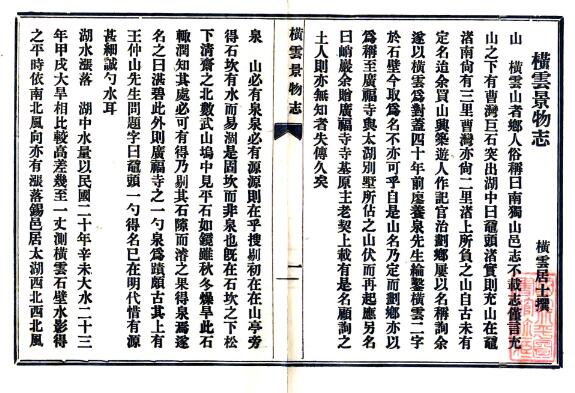 橫雲景物志
橫雲居士撰
山　橫雲山者鄉人俗稱曰南獨山邑志不載志僅言充
山之下有曹灣巨石突出湖中曰黿頭渚實則充山在黿
渚南尙有三里曹灣亦尙二里渚上所負之山自古未有
定名迨余買山興築遊人作記官治劃鄉屢以名稱詢余
遂以橫雲爲對蓋四十年前廖養泉先生綸鑿橫雲二字
於石壁今取爲名不亦可乎自是山名乃定而劃鄉亦以
爲稱至廣福寺與太湖別墅所佔之山伏而再起應另名
曰峭巖余贈廣福寺寺基原主老契上載有是名顧詢之
土人則亦無知者失傳久矣
橫雲景物志
一
泉　山必有泉泉必有源源則在乎搜剔初在在山亭旁
得石坎有水而易涸是固坎而非泉也既在石坎之下松
下清齋之北數武山塢中見平石如鏡雖秋冬燥旱此石
輒潤知其處必可有得乃剔其石隙而濬之果得泉焉遂
名之曰湛碧此外則廣福寺之一勺泉爲蹟頗古其上有
王仲山先生問題字曰黿頭一勺得名已在明代惜有源
甚細誠勺水耳
湖水漲落　湖中水量以民國二十年辛未大水二十三
年甲戌大旱相比較高差幾至一丈測橫雲石壁水影得
之平時依南北風向亦有漲落錫邑居太湖西北西北風